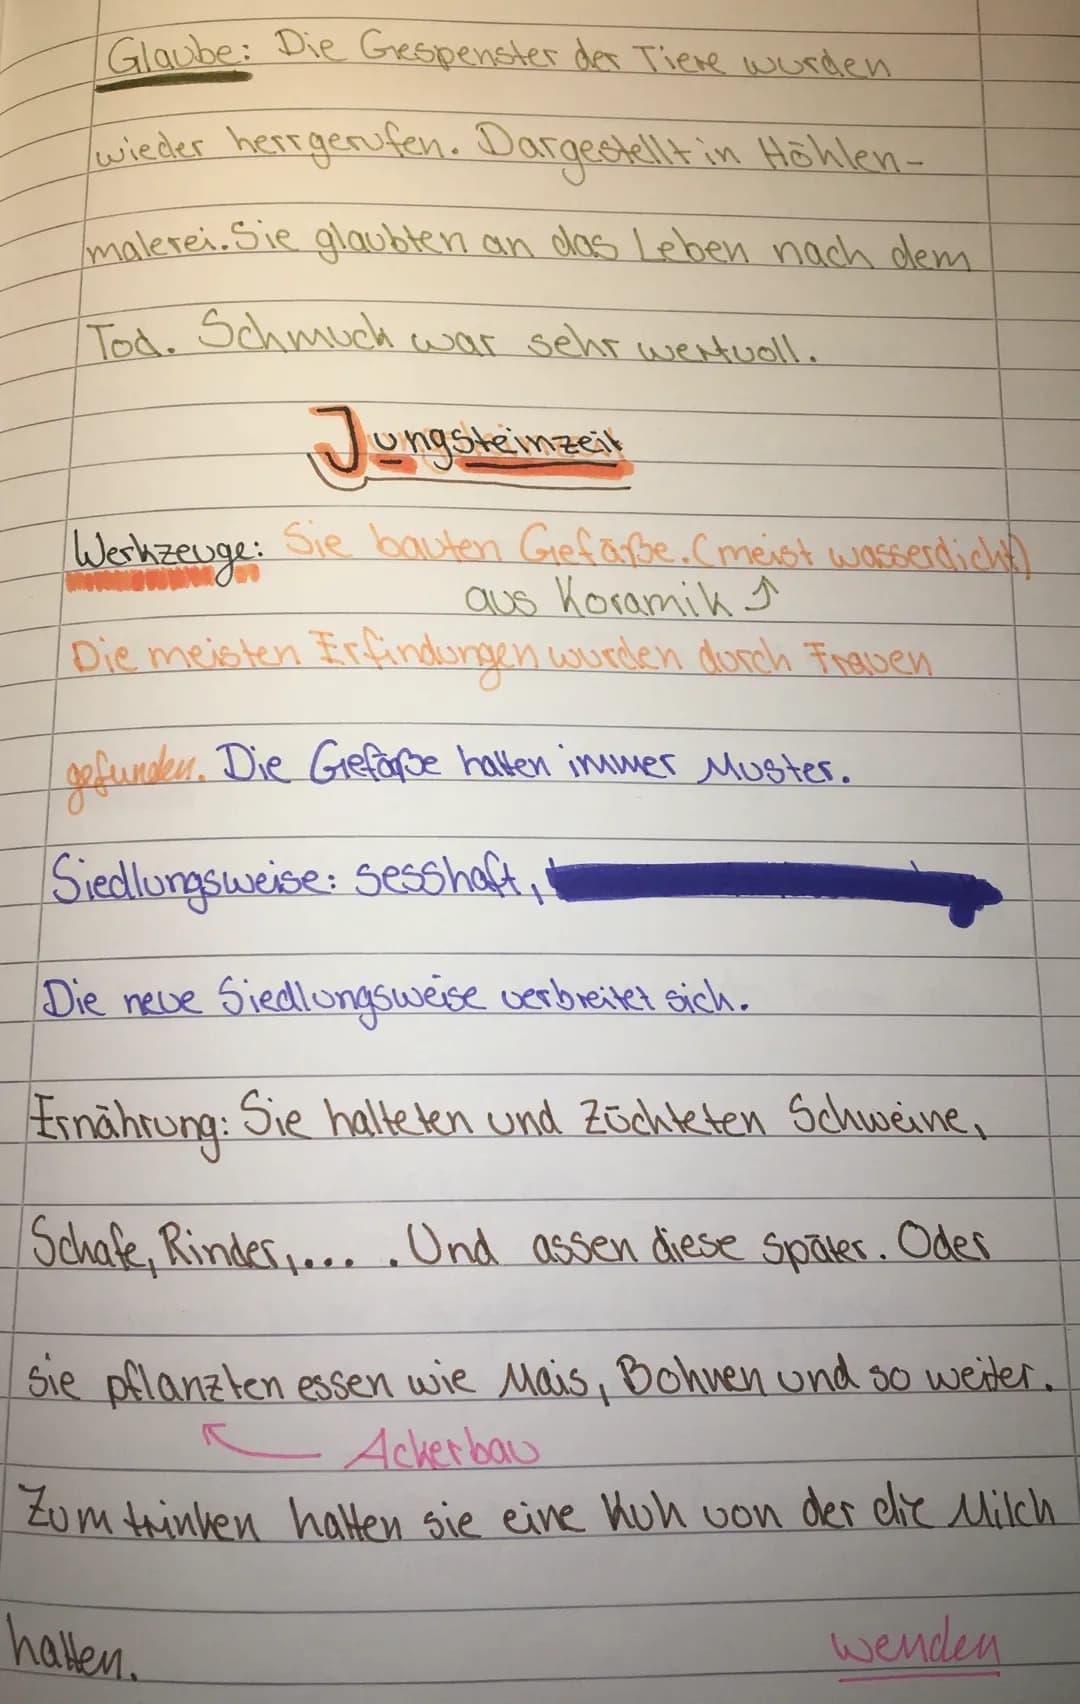 Glaube: Die Gespenster der Tiere wurden
wieder herrgerufen. Dargestellt in Höhlen-
malerei. Sie glaubten an das Leben nach dem
Tod. Schmuck war sehr wertvoll.
Jungsteinzeit
Werkzeuge: Sie bauten Gefäße. (meist wasserdicht)
aus Koramik
Die meisten Erfindungen wurden durch Frauen
gefunden. Die Gefäße hatten immer Muster.
Siedlungsweise: sesshaft,
Die neue Siedlungsweise verbreitet sich.
Ernährung: Sie halteten und züchteten Schweine,
Schafe, Rinder,... . Und assen diese später. Oder
sie pflanzten essen wie Mais, Bohnen und so weiter.
Ackerbau
Zum trinken hatten sie eine Kuh von der die Milch
hatten.
wenden